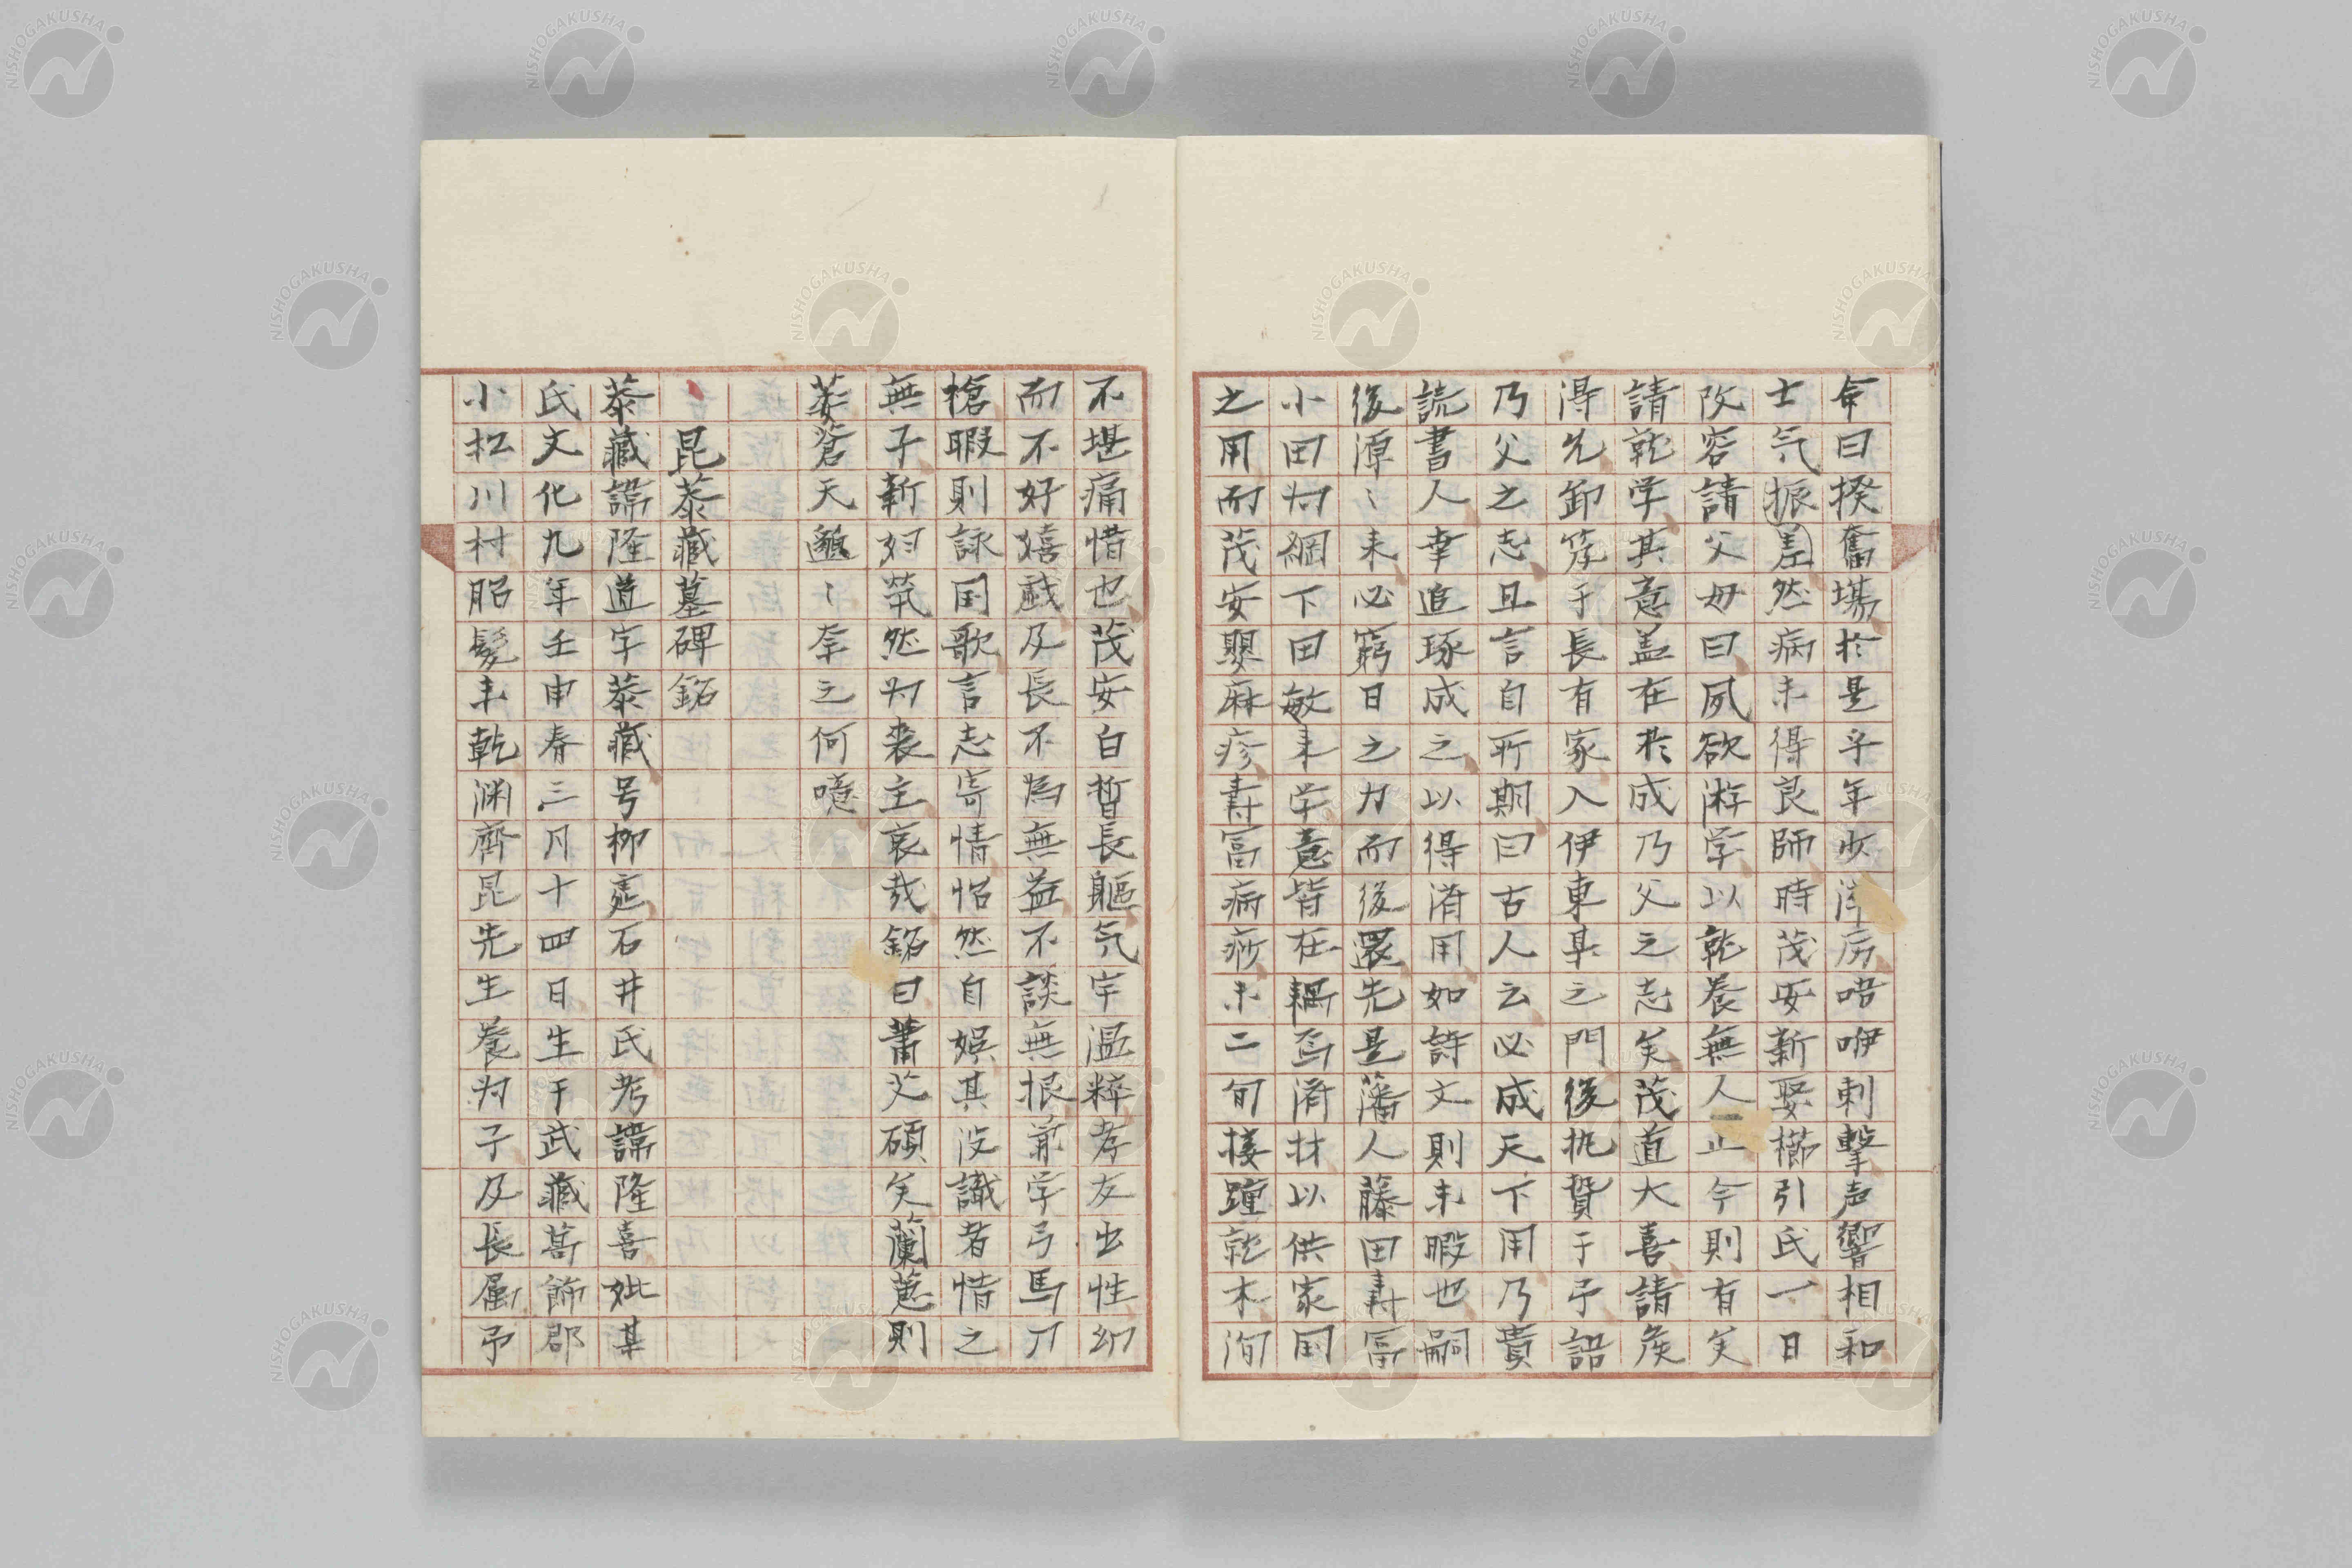 命曰揆奮塲於是乎年少滿房唔咿刺擊声響相和
士気振差然病未得良師時茂安新娶櫛引氏一日
改容請父母曰夙欲游学以乾養無人止今則有矣
請乾学其意盖在於成乃父之志矣茂道大喜請矦
得允卸笈于長有家入伊東某之門後执贄于予詔
乃父之志且言自所期曰古人云必成天下用乃貴
読書人幸追琢成之以得済用如詩文則未暇也嗣
後潭〻来必窮日之力而後還先是藩人藤田壽冨
小田切綱下田敏来学意皆在輛焉済材以供家国
之用而茂安嬰麻疹壽冨病痧未二旬接踵就木洵
不堪痛惜也茂安白晳長軀気宇温粹孝友出性幼
而不好嬉戯及長不為無益不談無根兼学弓馬刀
槍暇則詠国歌言志寄情怡然自娯其没識者惜之
無子新婦煢然为喪主哀哉銘曰蕭艾碩矣蘭蕙則
萎蒼天邈〻奈之何噫
昆泰藏墓碑銘
泰藏諱隆道字泰藏号柳逵石井氏考諱隆喜妣某
氏文化九年壬申春三月十四日生于武藏葛飾郡
小松川村髫髮丰乾渊齊昆先生養为子及長属予